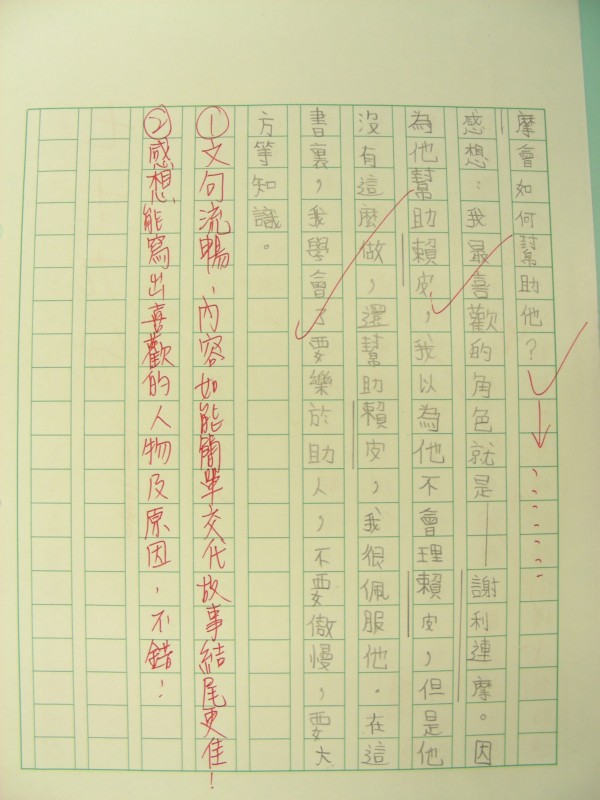 摩會如何幫助他?
感想:我最喜歡的角色就是——謝利連摩。因
為他幫助賴皮,我以為他不會理賴皮,但是他
沒有這麼做,還幫助賴皮,我很佩服他。在這
書裏,我學會了要樂於助人,不要傲慢,要大
方等知識。
①文句流暢,內容如能簡單交代故事結尾更佳!
②感想能寫出喜歡的人物及原因,不錯!